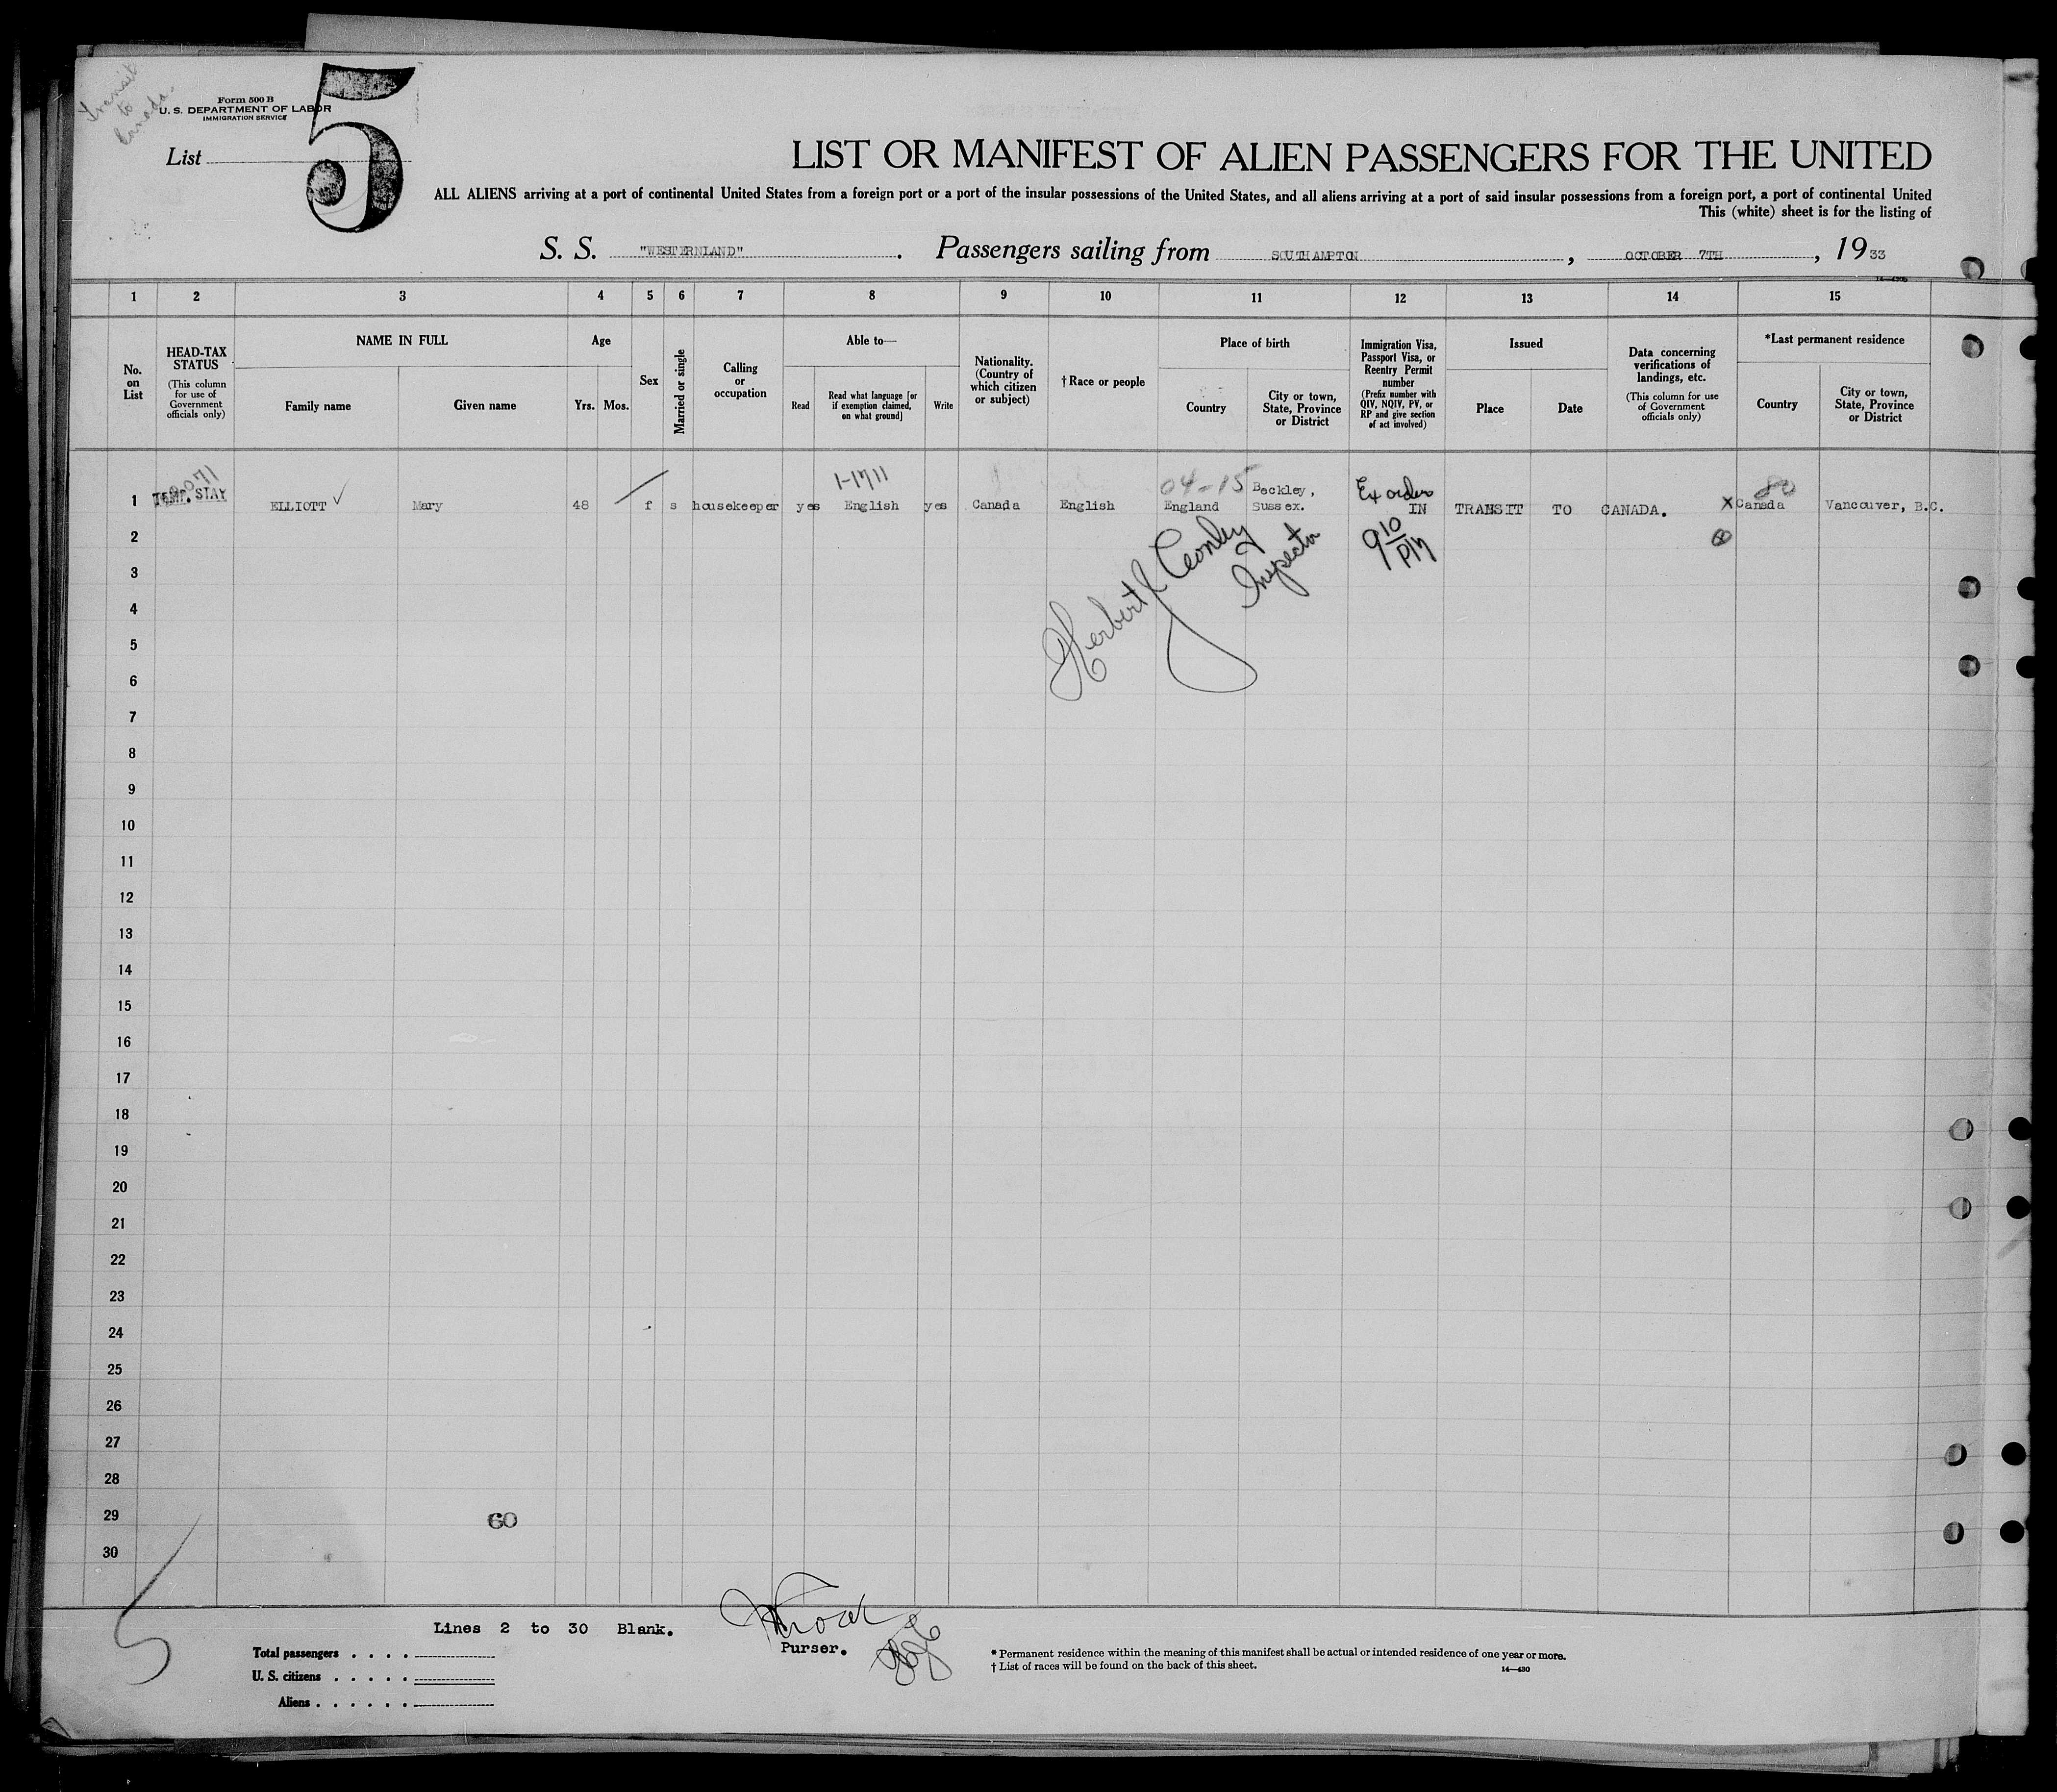 Transit
to
Canada.
Form 500 B
U. S. DEPARTMENT OF LABOR
IMMIGRATION SERVICE
List 5
LIST OR MANIFEST OF ALIEN PASSENGERS FOR THE UNITED
ALL ALIENS arriving at a port of continental United States from a foreign port or a port of the insular possessions of the United States, and all aliens arriving at a port of said insular possessions from a foreign port, a port of continental United
This (white) sheet is for the listing of
S. S. "WESTERNLAND". Passengers sailing from SOUTHAMPTON, OCTOBER 7TH, 1933
1 2 3 4 5 6 7 8 9 10 11 12 13 14 15
No. on List
HEAD-TAX STATUS (This column for use of Government officials only)
NAME IN FULL
Family name
Given name
Age
Yrs. Mos.
Sex
Married or single
Calling or occupation
Able to—
Read
Read what language [or if exemption claimed, on what ground]
Write
Nationality. (Country of which citizen or subject)
†Race or people
Place of birth
Country
City or town, State, Province or District
Immigration Visa, Passport Visa, or Reentry Permit number (Prefix number with QIV, NQIV, PV, or RP and give section of act involved)
Issued
Place
Date
Data concerning verifications of landings, etc. (This column for use of Government officials only)
*Last permanent residence
Country
City or town, State, Province or District
1-1711
04-15
Ex order
80
1 TEMP. STAY ELLIOTT ✓ Mary 48 f s housekeeper yes English yes Canada English England Beckley, Sussex. IN TRANSIT TO CANADA. X Canada Vancouver, B.C.
2
3
4
5
6
7
8
9
10
11
12
13
14
15
16
17
18
19
20
21
22
23
24
25
26
27
28
29
30
Herbert
Inspector
60
Lines 2 to 30 Blank.
Purser.
Total passengers
U. S. citizens
Aliens
* Permanent residence within the meaning of this manifest shall be actual or intended residence of one year or more.
† List of races will be found on the back of this sheet.
14—430